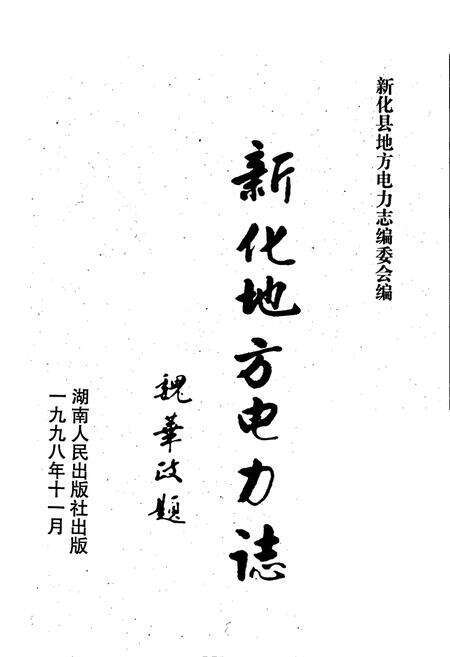 新化县地方电力志编委会编
新化地方电力誌
魏華政题
湖南人民出版社出版
一九九八年十一月